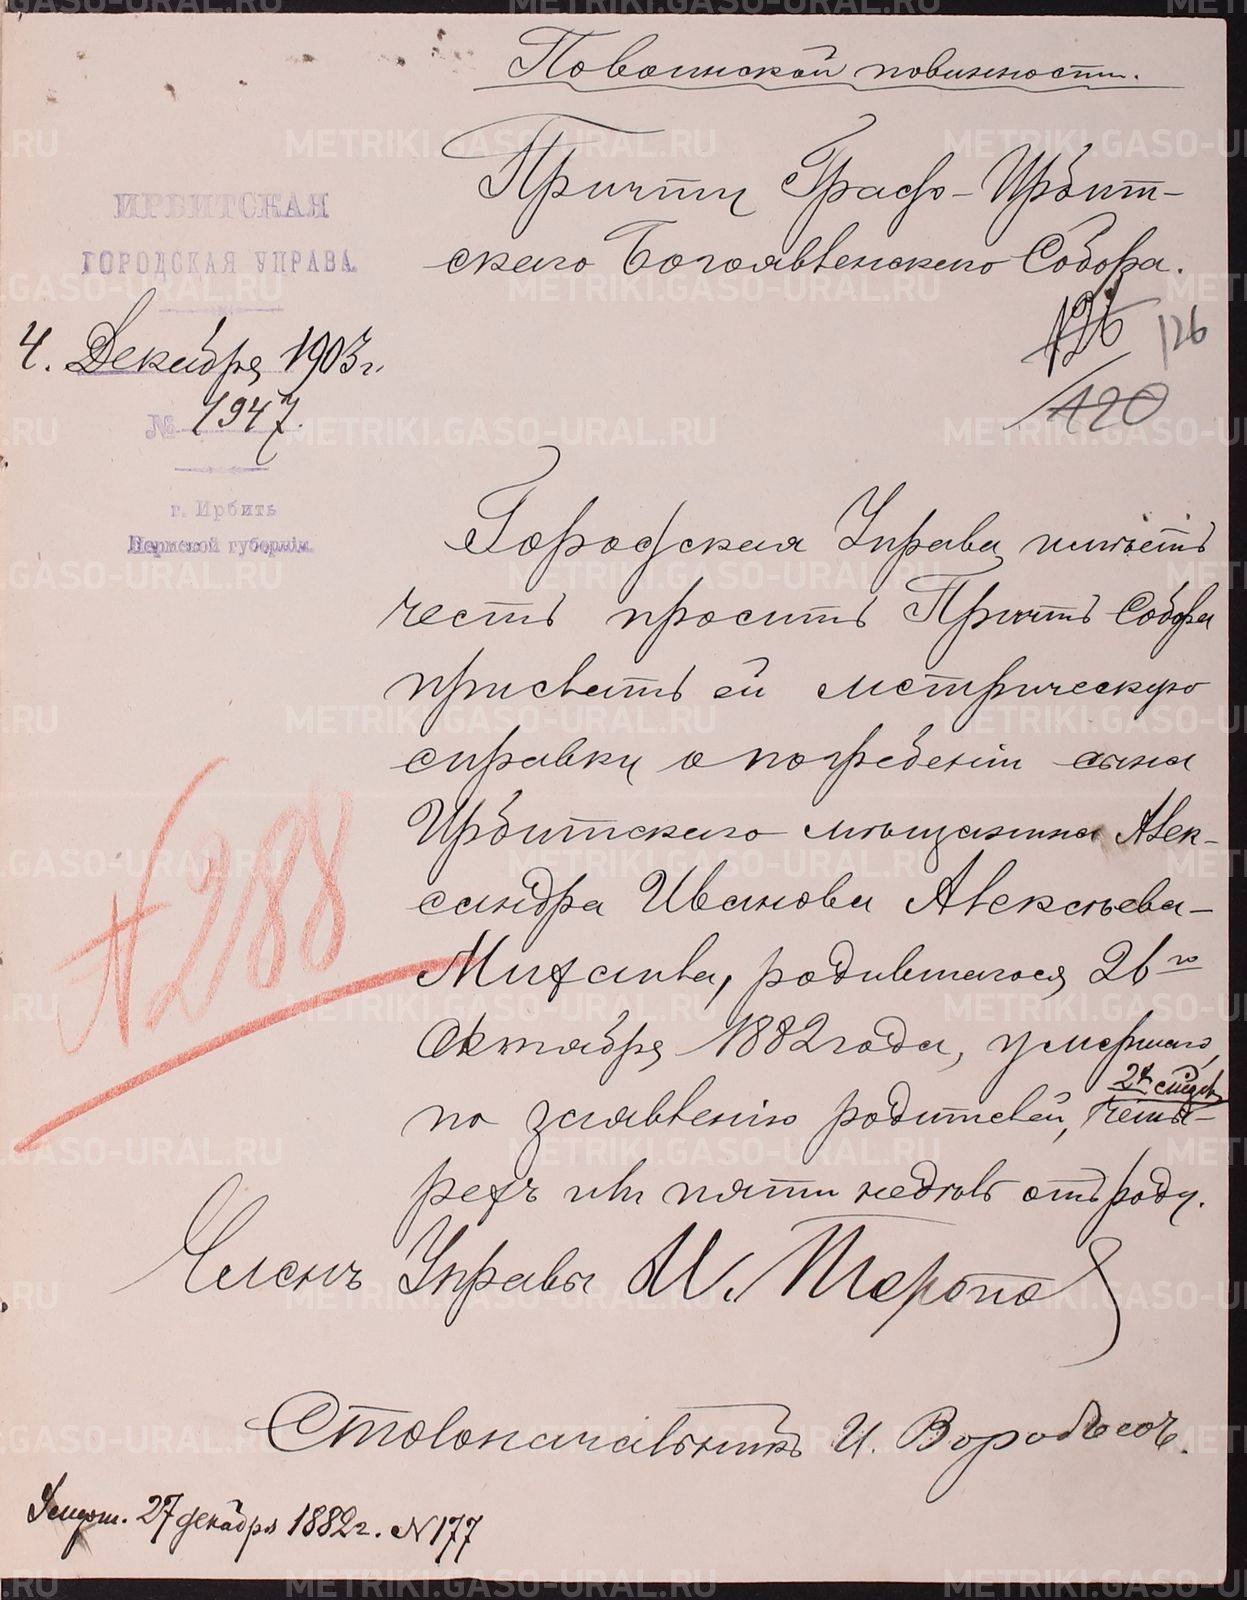 По воинской повинности.
Причту Градо-Ирбит-
скаго Богоявленскаго Собора.
ИРБИТСКАЯ
ГОРОДСКАЯ УПРАВА.
4. Декабря 1903 г.
№ 1947.
г. Ирбить
Пермской губернiи.
126 126
120
Городская Управа имѣетъ
честь просить Причтъ Собора
прислать ей метрическую
справку о погребенiи сына
Ирбитскаго мѣщанина Алек-
сандра Иванова Алексѣева-
Михаила, родившагося 26го
Октября 1882 года, умершаго,
по заявленiю родителей, четы-
рехъ или пяти недѣль отъ роду.
№ 288
Членъ Управы
Столоначальникъ И.
27 декабря 1882 г. № 177
METRIKI.GASO-URAL.RU